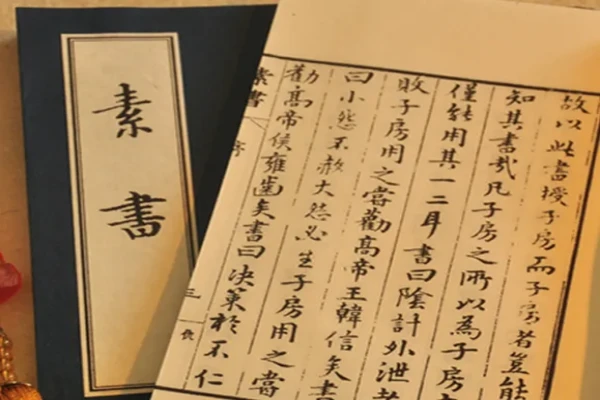 素書
故以此書授子房而子房者豈能
知其書哉凡子房之所以為子房
僅能用其一二耳書曰陰計外泄
敗子房用之嘗勸高帝王韓信矣書
曰小怨不赦大怨必生子房用之嘗
勸高帝侯雍齒矣書曰決策於不仁
素書 序 三